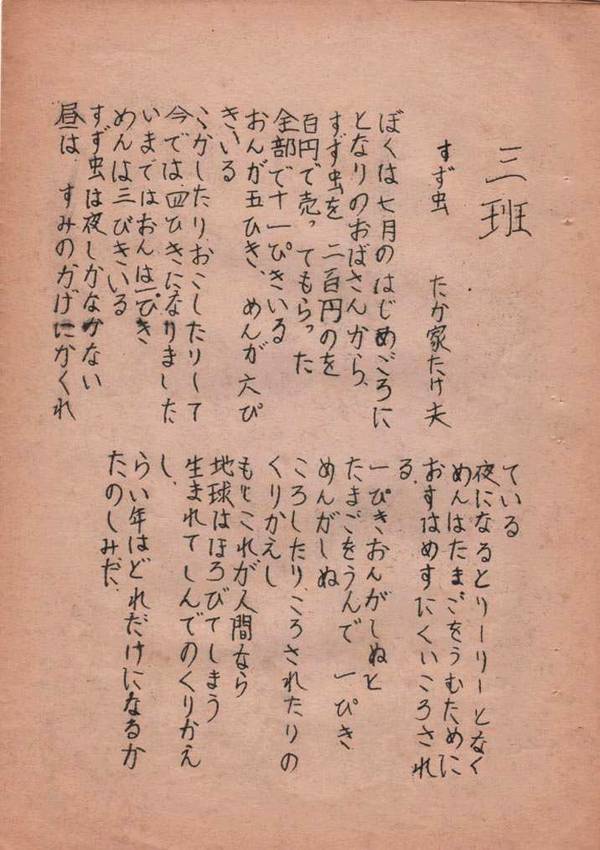 三班
すず虫　たか家たけ夫
ぼくは七月のはじめごろに
となりのおばさんから、
すず虫を　二百円のを
百円で売ってもらった
全部で十一ぴきいる
おんが五ひき、めんが六ぴ
きいる
らかしたりおこしたりして
今では四ひきになりました
いまではおんは一ぴき
めんは三びきいる
すず虫は夜しかなかない
昼は、すみのかげにかくれ
ている
夜になるとリーリーとなく
めんはたまごをうむために
おすはめすにくいころされ
る。
一ぴきおんがしぬと
たまごをうんで　一ぴき
めんがしぬ
ころしたり、ころされたりの
くりかえし
もしこれが人間なら
地球はほろびてしまう
生まれてしんでのくりかえ
し、
らい年はどれだけになるか
たのしみだ。